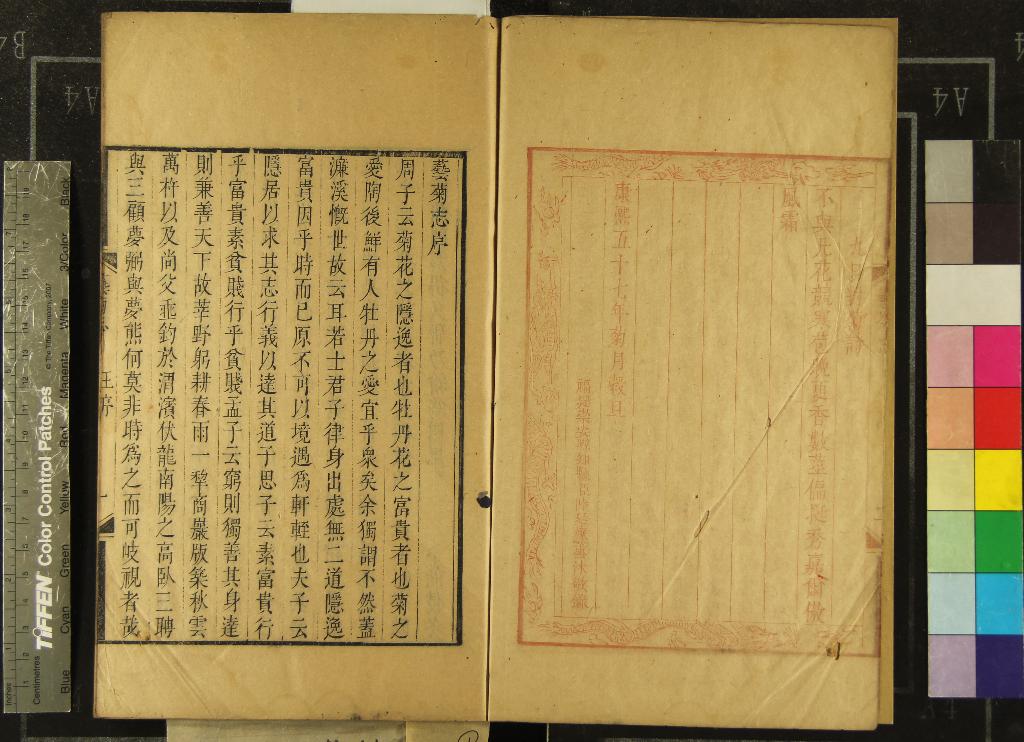 不與凡花競
風霜
康熙五十七年菊月
藝菊志序
周子云菊花之隱逸者也牡丹花之富貴者也菊之
愛陶後鮮有人牡丹之愛宜乎衆矣余獨謂不然蓋
濂溪慨世故云耳若士君子律身出處無二道隱逸
富貴因乎時而已原不可以境遇爲軒輊也夫子云
隱居以求其志行義以達其道子思子云素富貴行
乎富貴素貧賤行乎貧賤孟子云窮則獨善其身達
則兼善天下故莘野躬耕春雨一犂商巖版築秋雲
萬杵以及尚父垂釣於渭濱伏龍南陽之高臥三聘
與三顧夢弼與夢熊何莫非時爲之而可歧視者哉
王序
一
TIFFEN Color Control Patches
© The Tiffen Company, 2007
Inches
Centimetres
Blue
Cyan
Green
Yellow
Red
Magenta
White
3/Color
Black
A4
A4
B4